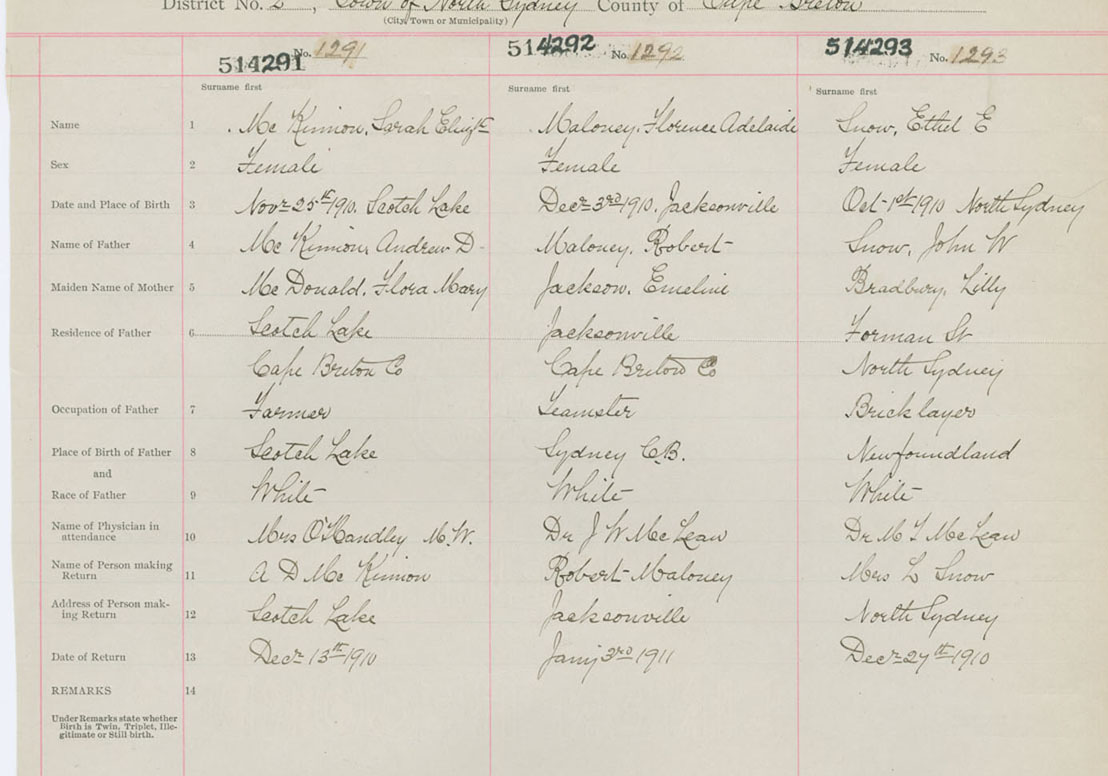 District No. 2, Town of North Sydney County of Cape Breton
(City, Town or Municipality)
514291 No. 1291 514292 No. 1292 514293 No. 1293
Surname first Surname first Surname first
Name 1 Mc Kinnon, Sarah Elizth Maloney, Florence Adelaide Snow, Ethel E
Sex 2 Female Female Female
Date and Place of Birth 3 Novr 25th 1910. Scotch Lake Decr 3rd 1910. Jacksonville Oct 1st 1910 North Sydney
Name of Father 4 Mc Kinnon, Andrew D Maloney, Robert Snow, John W
Maiden Name of Mother 5 Mc Donald, Flora Mary Jackson, Emeline Bradbury, Lilly
Residence of Father 6 Scotch Lake Jacksonville Forman St
Cape Breton Co Cape Breton Co North Sydney
Occupation of Father 7 Farmer Teamster Bricklayer
Place of Birth of Father 8 Scotch Lake Sydney C.B. Newfoundland
and
Race of Father 9 White White White
Name of Physician in
attendance 10 Mrs O'Handley M.W. Dr J W McLean Dr M T McLean
Name of Person making
Return 11 A D Mc Kinnon Robert Maloney Mrs L Snow
Address of Person mak-
ing Return 12 Scotch Lake Jacksonville North Sydney
Date of Return 13 Decr 13th 1910 Jany 3rd 1911 Decr 27th 1910
REMARKS 14
Under Remarks state whether
Birth is Twin, Triplet, Ille-
gitimate or Still birth.